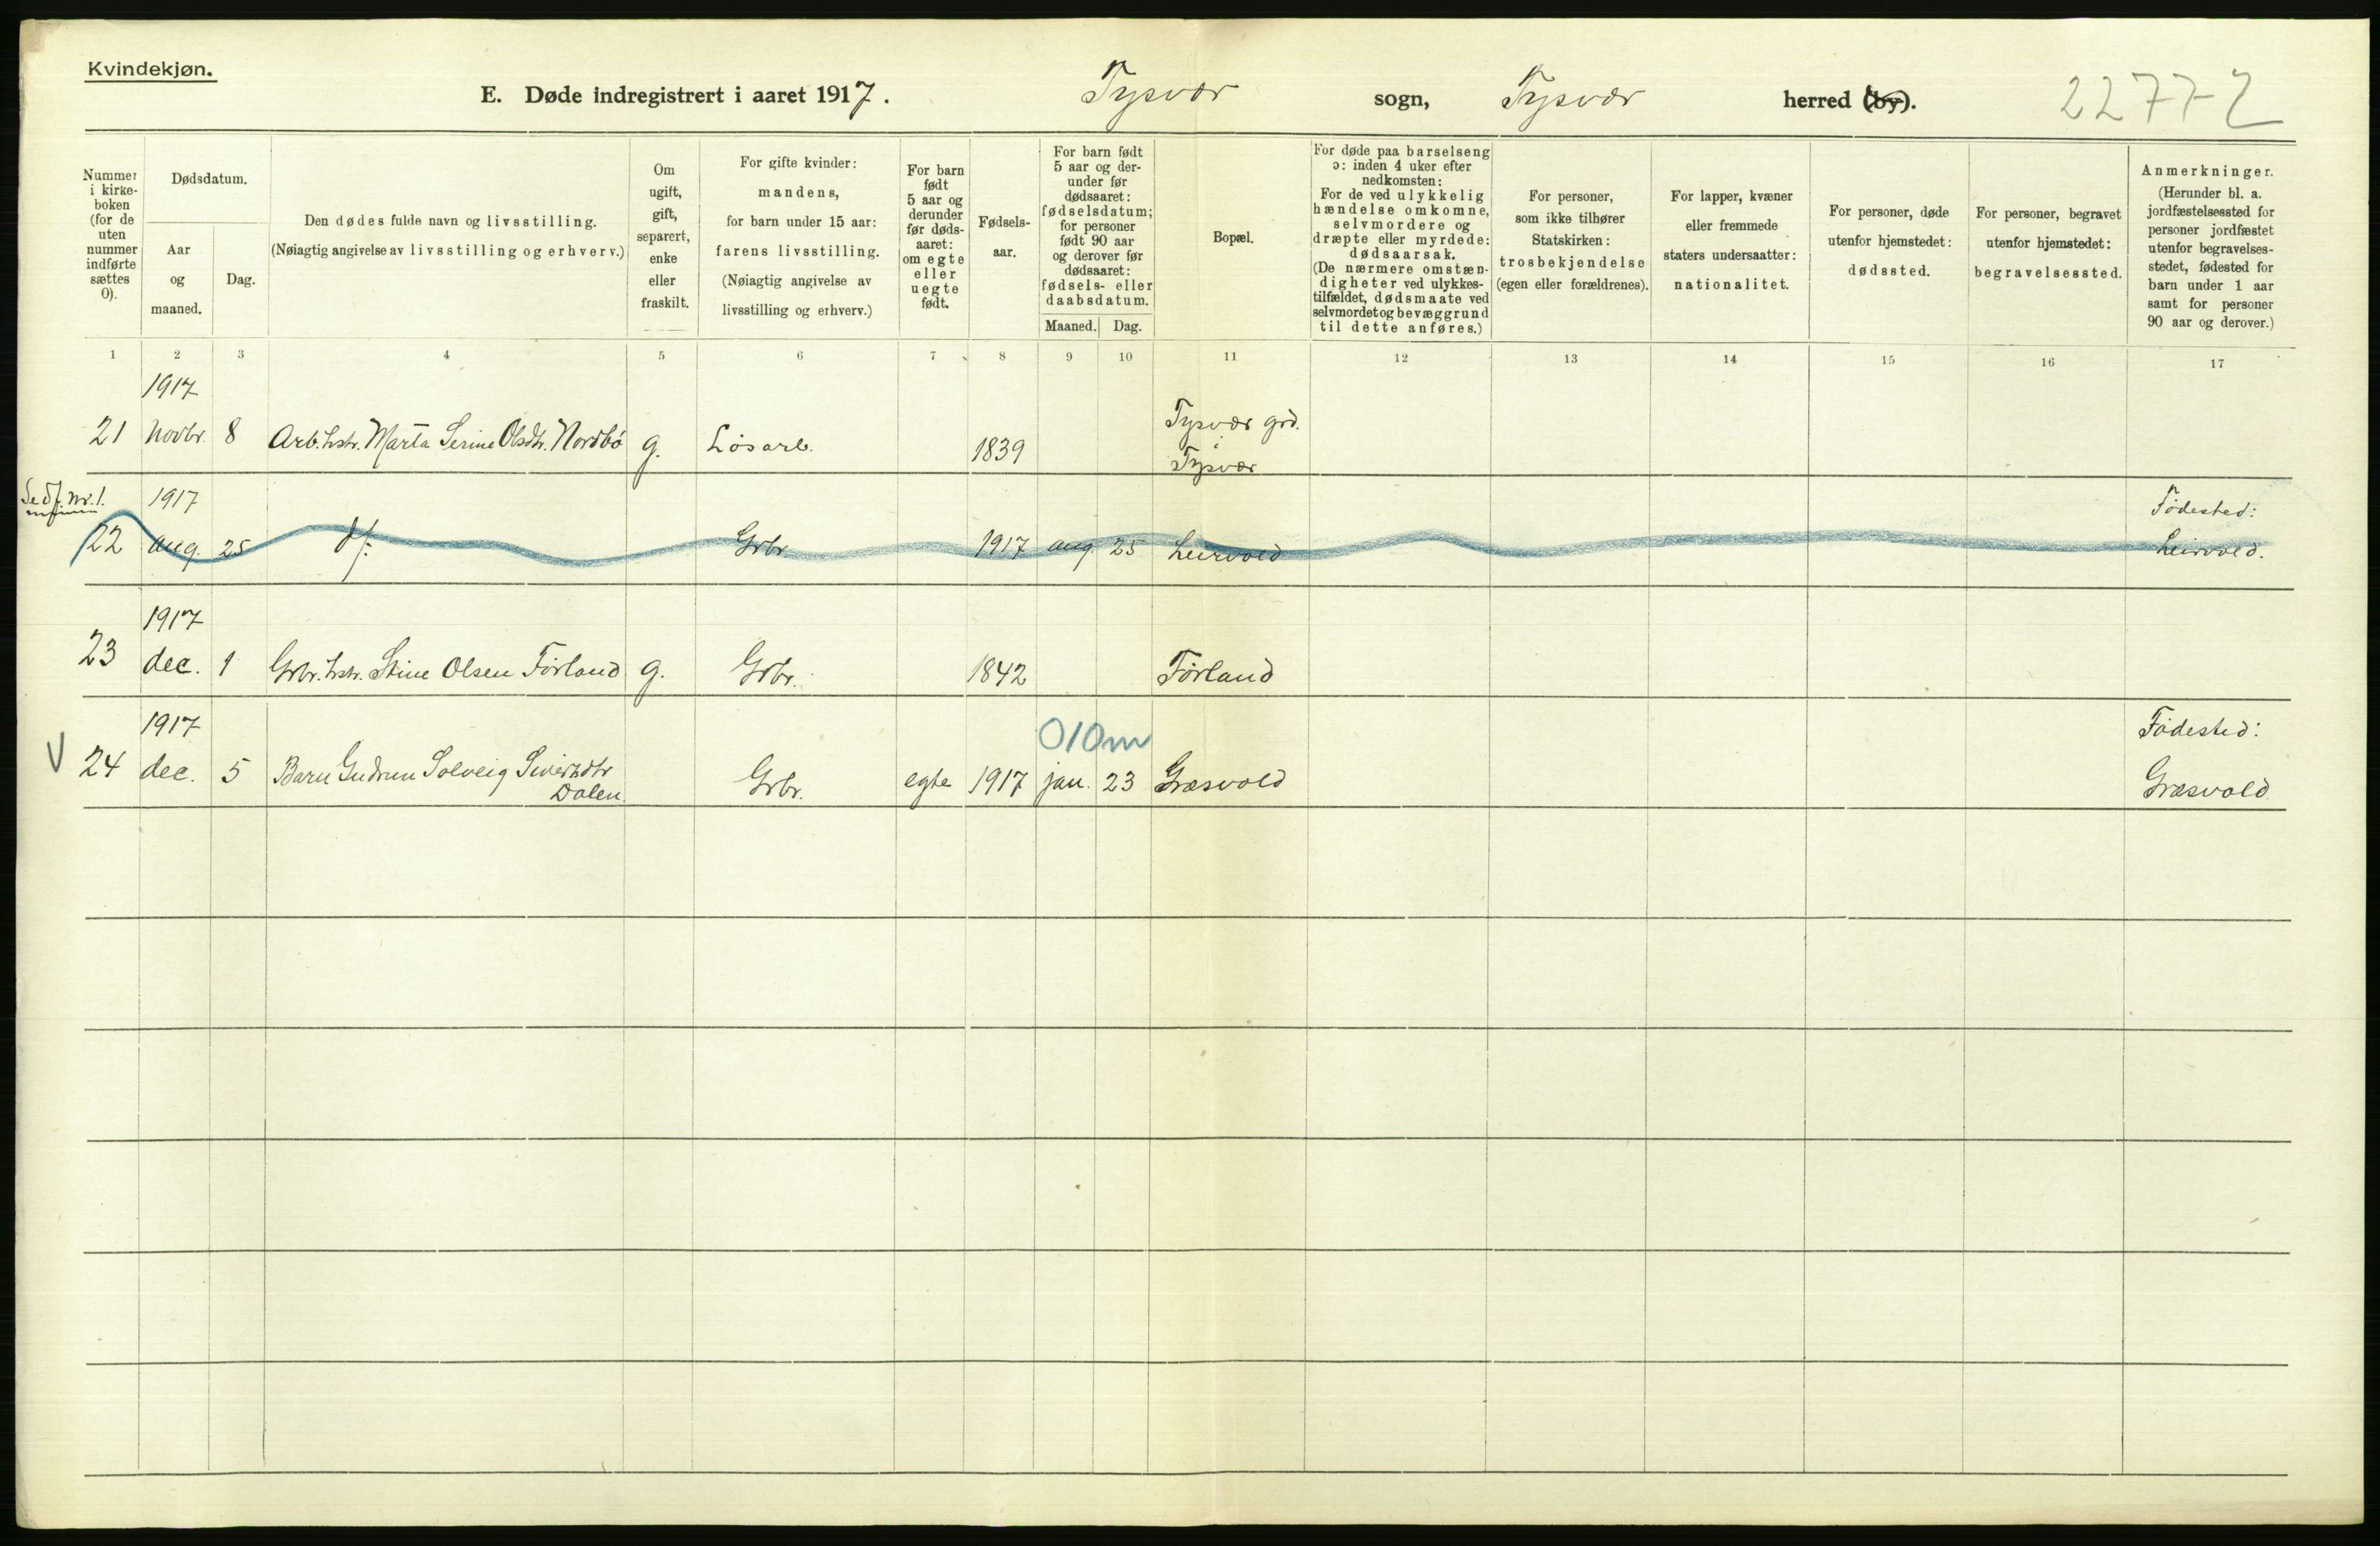 Kvindekjøn.
E. Døde indregistrert i aaret 1917. Tysvær sogn, Tysvær herred (by). 2277-2
Nummer i kirke-boken (for de uten nummer indførte sættes 0).
Dødsdatum.
Aar og maaned.
Dag.
Den dødes fulde navn og livsstilling.
(Nøiagtig angivelse av livsstilling og erhverv.)
Om ugift, gift, separert, enke eller fraskilt.
For gifte kvinder: mandens, for barn under 15 aar: farens livsstilling. (Nøiagtig angivelse av livsstilling og erhverv.)
For barn født 5 aar og derunder før døds-aaret: om egte eller uegte født.
Fødsels-aar.
For barn født 5 aar og der-under før dødsaaret: fødselsdatum; for personer født 90 aar og derover før dødsaaret: fødsels- eller daabsdatum.
Maaned. Dag.
Bopæl.
For døde paa barselseng ɔ: inden 4 uker efter nedkomsten: For de ved ulykkelig hændelse omkomne, selvmordere og dræpte eller myrdede: dødsaarsak. (De nærmere omstæn-digheter ved ulykkes-tilfældet, dødsmaate ved selvmordet og bevæggrund til dette anføres.)
For personer, som ikke tilhører Statskirken: trosbekjendelse (egen eller forældrenes).
For lapper, kvæner eller fremmede staters undersaatter: nationalitet.
For personer, døde utenfor hjemstedet: dødssted.
For personer, begravet utenfor hjemstedet: begravelsessted.
Anmerkninger. (Herunder bl. a. jordfæstelsessted for personer jordfæstet utenfor begravelses-stedet, fødested for barn under 1 aar samt for personer 90 aar og derover.)
1 2 3 4 5 6 7 8 9 10 11 12 13 14 15 16 17
1917
21 Novbr. 8 Arb.hstr. Marta Serine Olsdtr. Nordbø g. Løsarb. 1839 Tysvær grd. i Tysvær
Se df. nr. 1.
1917 Fødested:
22 aug. 25 df. Grbr. 1917 aug. 25 Leirvold Leirvold.
1917
23 dec. 1 Grbr. hstr. Stine Olsen Førland g. Grbr. 1842 Førland
1917 010m Fødested:
V 24 dec. 5 Barn Gudrun Solveig Siversdtr Dalen Grbr. egte 1917 jan. 23 Græsvold Græsvold